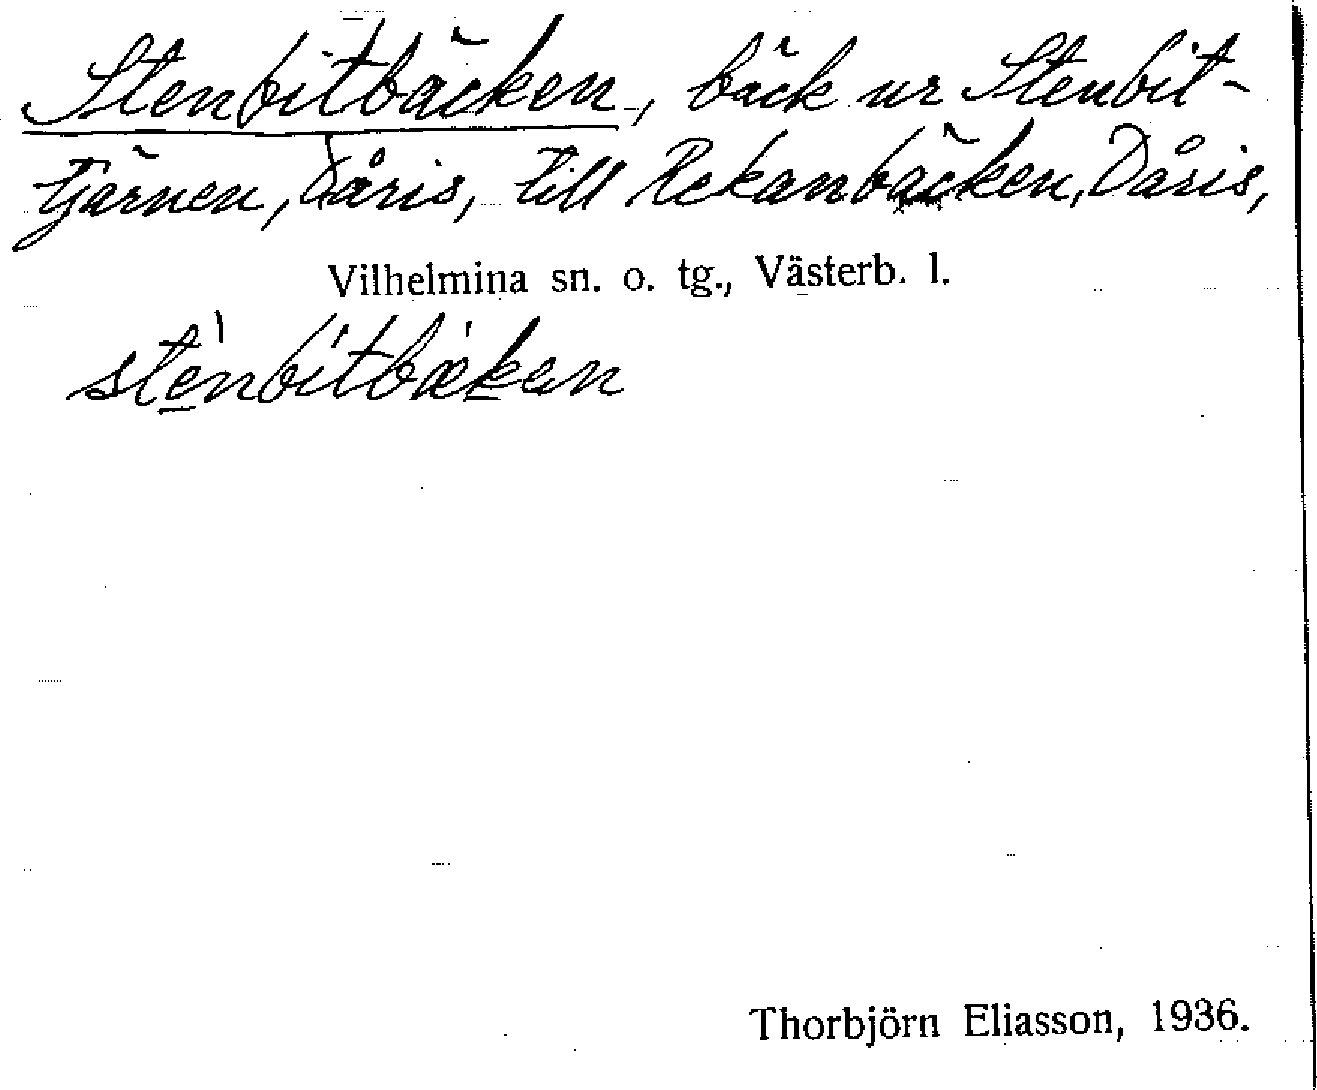 Stenbitbäcken, bäck ur Stenbit-
tjärnen, Dåris, till Rekanbäcken, Dåris,
Vilhelmina sn. o. tg., Västerb. l.
stènbìtbækan
Thorbjörn Eliasson, 1936.